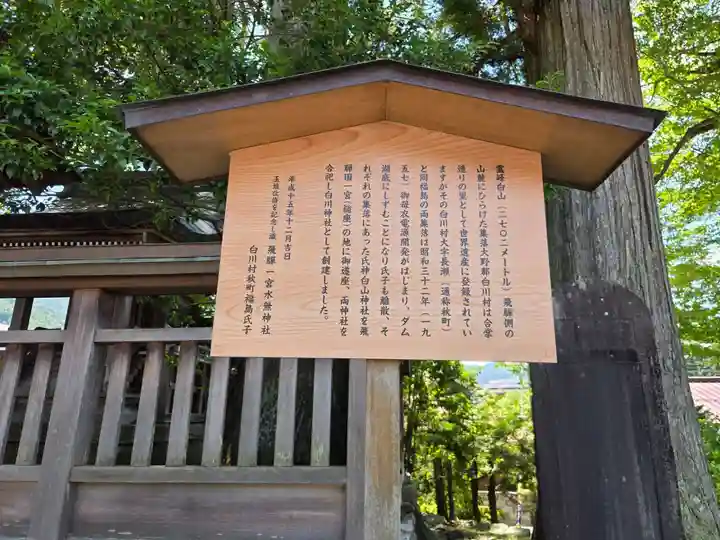 霊峰白山(二七〇二メートル)飛騨側の
山麓にひらけた集落大野郡白川村は合掌
造りの里として世界遺産に登録されてい
ますがその白川村大字長瀬(通称秋町)
と同福島の両集落は昭和三十二年(一九
五七)御母衣電源開発がはじまり、ダム
湖底にしずむことになり氏子も離散、そ
れぞれの集落にあった氏神白山神社を飛
騨国一宮(鎮座)の地に御遷座、両神社を
合祀し白川神社として創建しました。
平成十五年十二月吉日
玉垣改修を記念し識
飛騨一宮水無神社
白川村秋町福島氏子